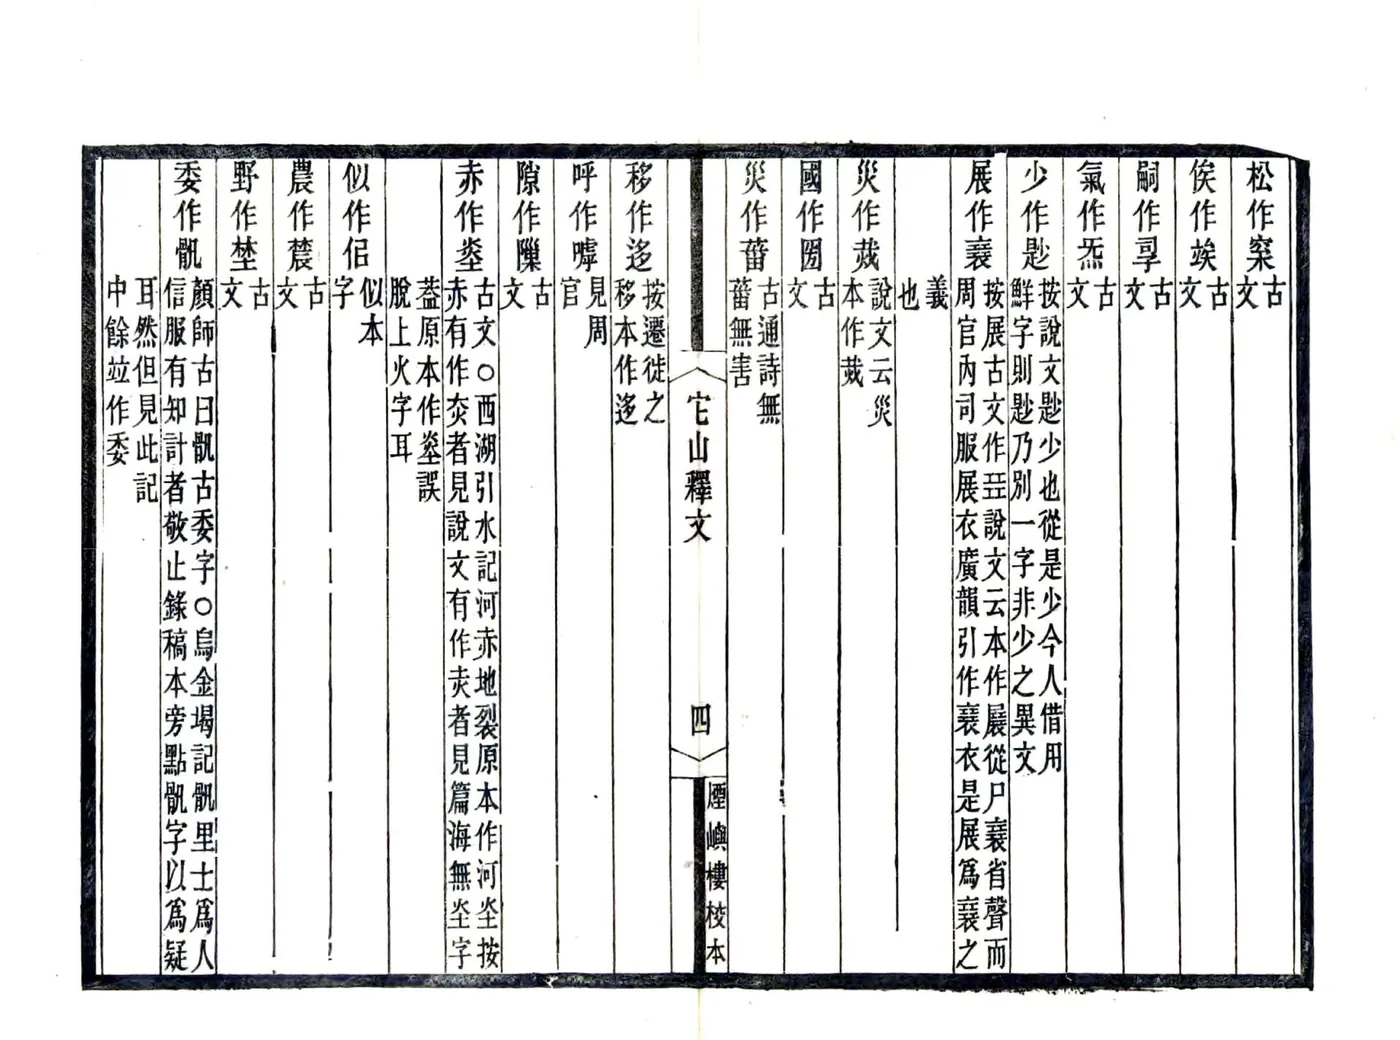 松作䆫古文
俟作竢古文
嗣作孠古文
氣作炁古文
少作尟按說文尟少也從是少今人借用
鮮字則尟乃別一字非少之異文
展作襄按展古文作㠭說文云本作展從尸襄省聲而
周官內司服展衣廣韻引作襄衣是展爲襄之
義
也
災作烖說文云災
本作烖
國作圀古文
災作葘古通詩無
葘無害
它山釋文
四
煙嶼樓校本
移作迻按遷徙之
移本作迻
呼作嘑見周
官
隙作隟古文
赤作烾古文○西湖引水記河赤地裂原本作河坔按
赤有作灻者見說文有作烾者見篇海無坔字
葢原本作烾誤
脫上火字耳
似作佀似本
字
農作辳古文
野作埜古文
委作骩顏師古曰骩古委字○烏金堨記骩里士爲人
信服有知計者敬止錄稿本旁點骩字以爲疑
耳然但見此記
中餘竝作委